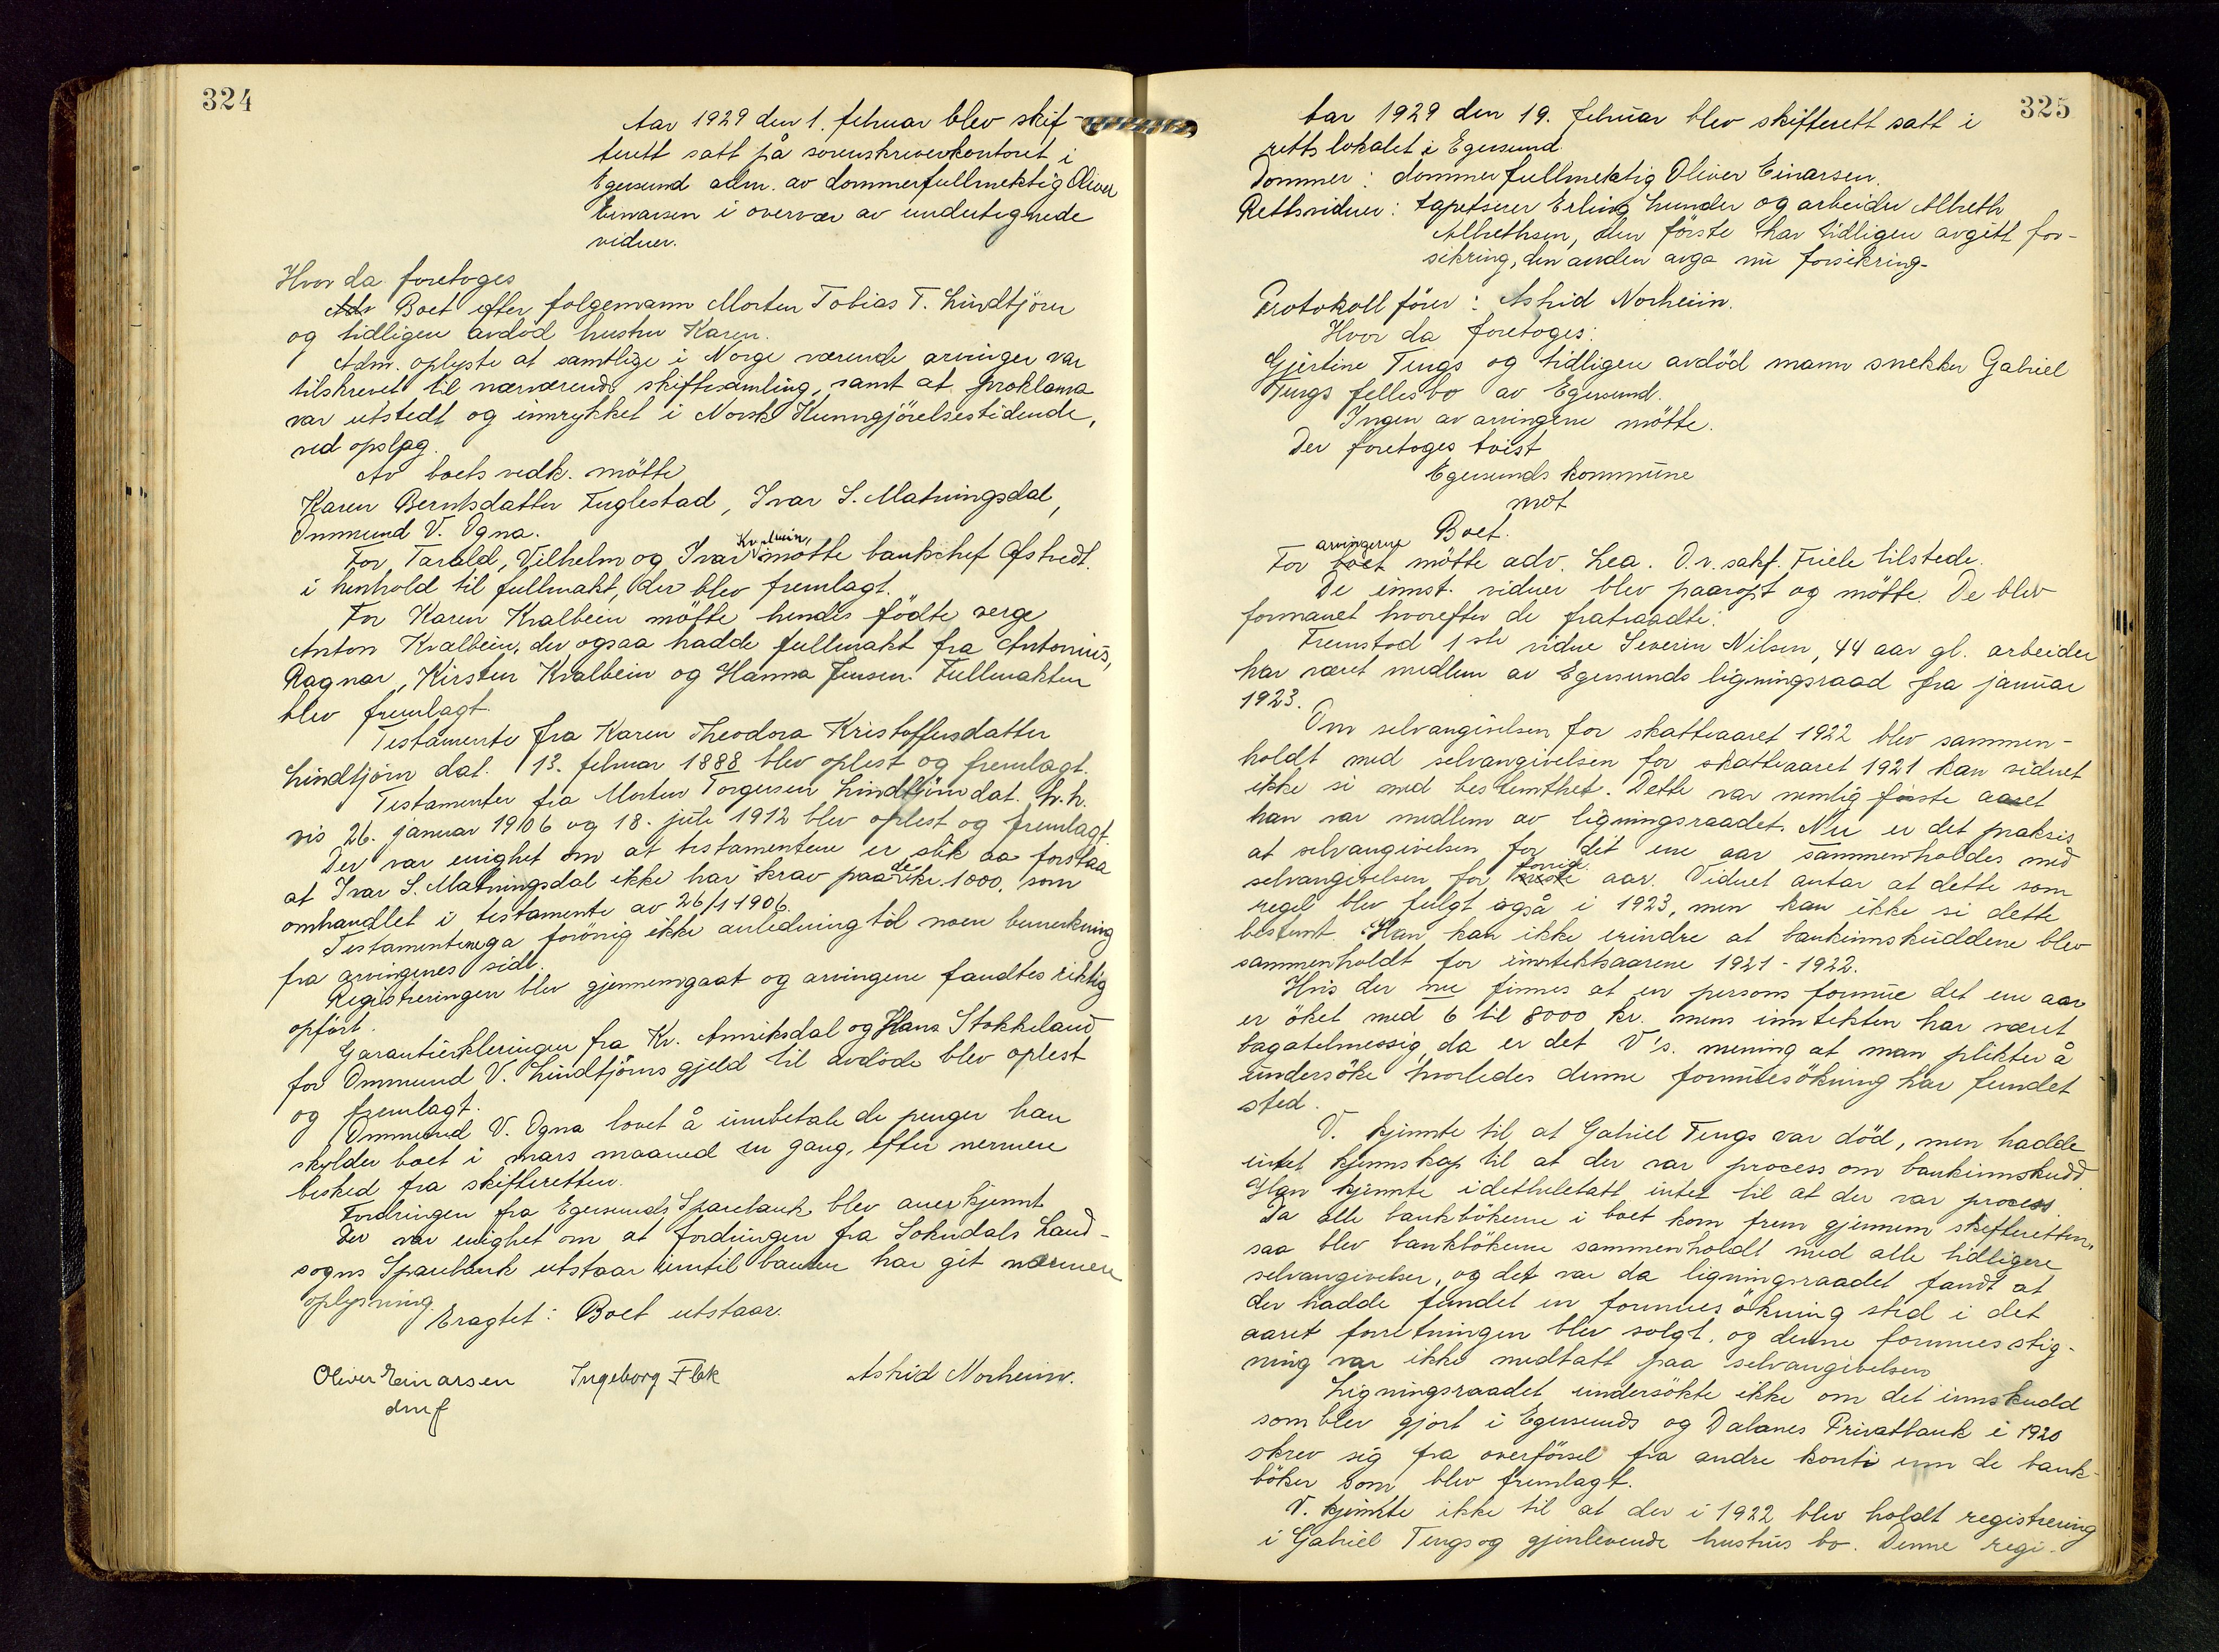 324
Aar 1929 den 1. februar blev skif-
terett satt på sorenskriverkontoret i
Egersund adm. av dommerfullmektig Oliver
Einarsen i overvær av undertegnede
vidner.
Hvor da foretoges
Boet efter følgemann Morten Tobias T. Lindtjörn
og tidligere avdöd hustru Karen.
Adm. oplyste at samtlige i Norge værende arvinger var
tilskrevet til nærværende skiftesamling, samt at proklama
var utstedt og innrykket i Norsk Kunngjörelsestidende,
ved opslag.
Av boets vedk. mötte
Karen Berntsdatter Fuglestad, Ivar S. Matningsdal,
Ommund V. Ogna.
For Tarald, Vilhelm og Ivar Kvalbein, mötte bankchef Ofstedt
i henhold til fullmakt, der blev fremlagt.
For Karen Kvalbein mötte hendes födte verge
Anton Kvalbein, der ogsaa hadde fullmakt fra Antonius,
Ragnar, Kirsten Kvalbein og Hanna Jensen. Fullmakten
blev fremlagt.
Testamente fra Karen Theodora Kristoffersdatter
Lindtjörn dat. 13. februar 1888 blev oplest og fremlagt.
Testamenter fra Morten Torgersen Lindtjörn dat. h.h.
vis 26. januar 1906 og 18. juli 1912 blev oplest og fremlagt.
Der var enighet om at testamentene er slik aa forstaa
at Ivar S. Matningsdal ikke har krav paa de kr. 1000, som
omhandlet i testamente av 26/1 1906.
Testamentene ga forövrig ikke anledning til noen bemerkning
fra arvingenes side.
Registreringen blev gjennemgaat og arvingene fandtes riktig
opfört.
Garantierkleringen fra Kr. Anniksdal og Hans Stokkeland
for Ommund V. Lindtjörns gjeld til avdöde blev oplest
og fremlagt.
Ommund V. Ogna lovet å innbetale de penger han
skylder boet i mars maaned en gang, efter nermere
besked fra skifteretten.
Fordringen fra Egersunds Sparebank blev anerkjennt
Der var enighet om at fordringen fra Sokndals Land-
sogns Sparebank utstaar inntil banken har git nærmere
oplysning.
Eragtet: Boet utstaar.
Oliver Einarsen Ingeborg Flek Astrid Norheim.
dmf
325
Aar 1929 den 19. februar blev skifterett satt i
rettslokalet i Egersund.
Dommer: dommerfullmektig Oliver Einarsen.
Rettsvidner: tapetserer Erling Lunder og arbeider Albreth
Albrethsen, den förste har tidligere avgitt for-
sikring, den anden avga nu forsikring.
Protokollförer: Astrid Norheim.
Hvor da foretoges:
Gjertine Tengs og tidligere avdöd mann snekker Gabriel
Tengs fellesbo av Egersund.
Ingen av arvingene mötte.
Der foretoges tvist
Egersunds kommune
mot
Boet.
For arvingerne boet mötte adv. Lea. O.r. sakf. Friele tilstede.
De innst. vidner blev paaropt og mötte. De blev
formanet hvorefter de fratraadte.
Fremstod 1ste vidne Severin Nilsen, 44 aar gl. arbeider
har været medlem av Egersunds ligningsraad fra januar
1923.
Om selvangivelsen for skatteaaret 1922 blev sammen-
holdt med selvangivelsen for skatteaaret 1921 kan vidnet
ikke si med bestemthet. Dette var nemlig förste aaret
han var medlem av ligningsraadet. Nu er det praksis
at selvangivelsen for dit ene aar sammenholdes med
selvangivelsen for forrige aar. Vidnet antar at dette som
regel blev fulgt også i 1923, men kan ikke si dette
bestemt. Han kan ikke erindre at bankinnskuddene blev
sammenholdt for inntektsaarene 1921-1922.
Hvis der nu finnes at en persons formue det ene aar
er öket med 6 til 8000 kr. mens inntekten har været
bagatelmessig, da er det V's. mening at man plikter å
undersöke hvorledes denne formuesökning har fundet
sted.
V. kjennte til at Gabriel Tengs var död, men hadde
intet kjennskap til at der var process om bankinnskudd.
Han kjennte idetheletatt intet til at der var process
Da alle bankbökerne i boet kom frem gjennem skifteretten,
saa blev bankbökerne sammenholdt med alle tidligere
selvangivelser, og det var da ligningsraadet fandt at
der hadde fundet en formuesökning sted i det
aaret forretningen blev solgt, og denne formuesstig-
ning var ikke medtatt paa selvangivelsen
Ligningsraadet undersökte ikke om det innskudd
som blev gjort i Egersunds og Dalanes Privatbank i 1920
skrev sig fra overförsel fra andre konti enn de bank-
böker som blev fremlagt.
V. kjennte ikke til at der i 1922 blev holdt registrering
i Gabriel Tengs og gjenlevende hustrus bo. Denne regi-